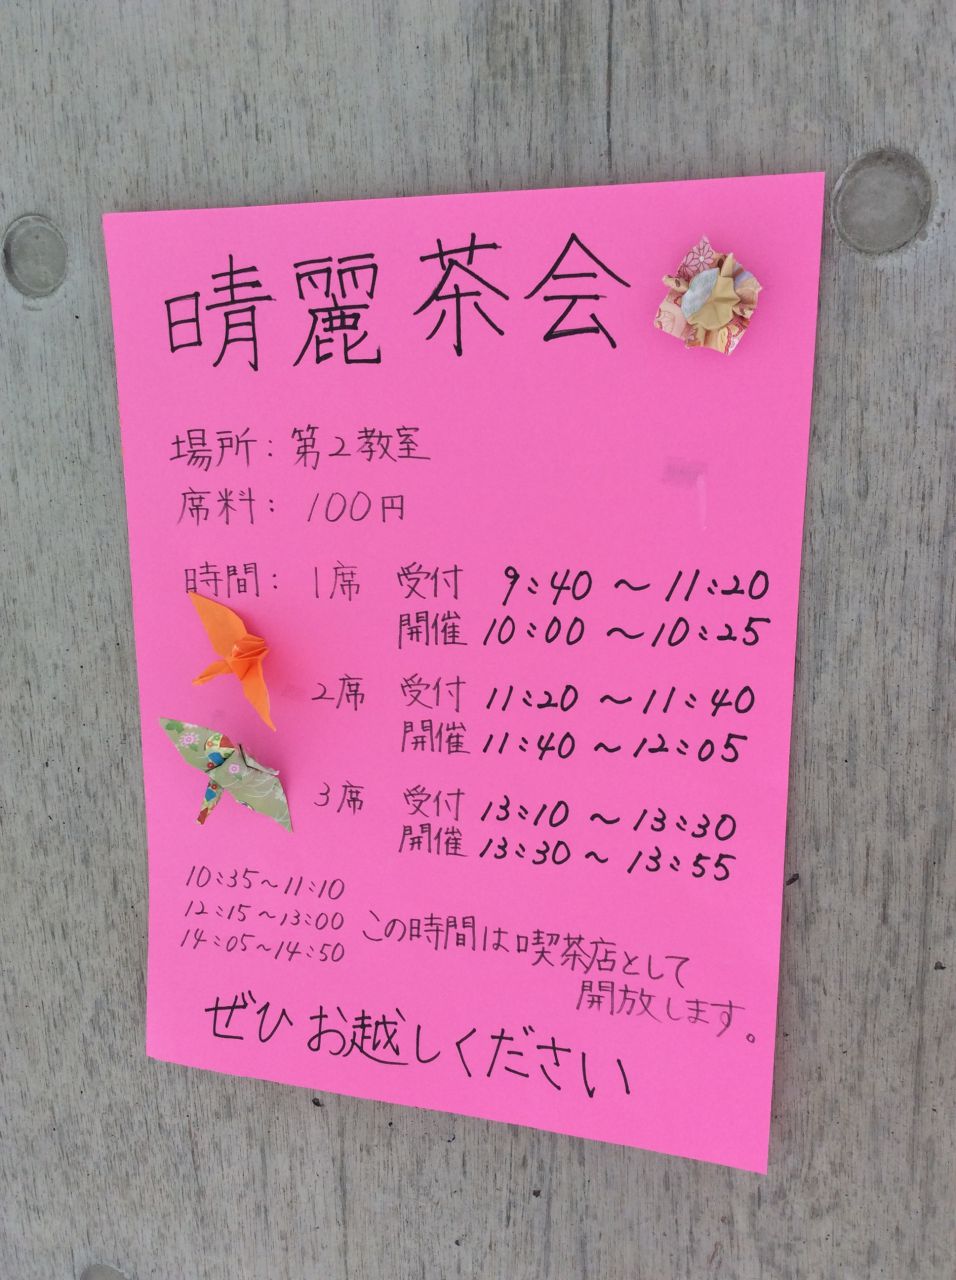 晴麗茶会
場所：第2教室
席料：100円
時間：1席 受付 9:40～11:20
開催 10:00～10:25
2席 受付 11:20～11:40
開催 11:40～12:05
3席 受付 13:10～13:30
開催 13:30～13:55
10:35～11:10
12:15～13:00
14:05～14:50
この時間は喫茶店として
開放します。
ぜひお越しください